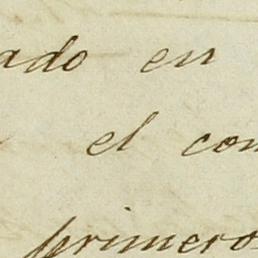 ado en
el con
primero